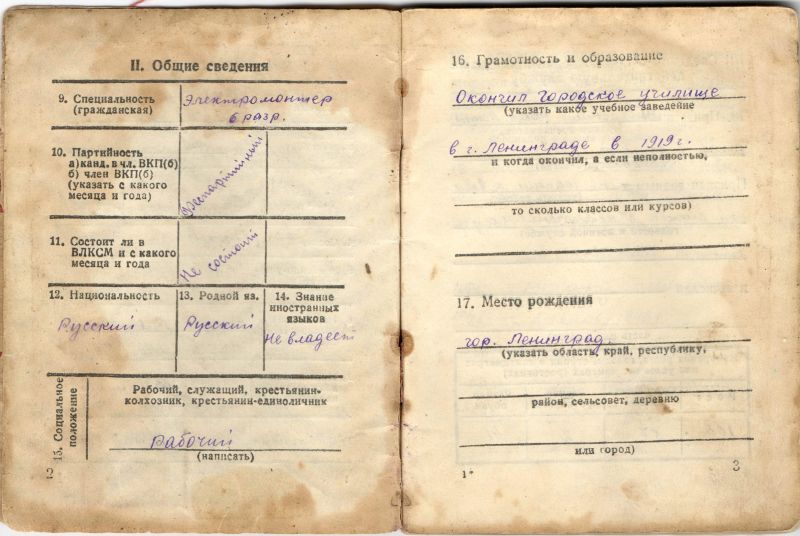 II. Общие сведения
9. Специальность
(гражданская)
Электромонтер
6 разр.
10. Партийность
а) канд. в чл. ВКП(б)
б) член ВКП(б)
(указать с какого
месяца и года)
Беспартийный
11. Состоит ли в
ВЛКСМ и с какого
месяца и года
Не состоит
12. Национальность
Русский
13. Родной яз.
Русский
14. Знание
иностранных
языков
Не владеет
15. Социальное
положение
Рабочий, служащий, крестьянин-
колхозник, крестьянин-единоличник
Рабочий
(написать)
2
16. Грамотность и образование
Окончил городское училище
(указать какое учебное заведение
в г. Ленинграде в 1919 г.
и когда окончил, а если неполностью,
то сколько классов или курсов)
17. Место рождения
гор. Ленинград.
(указать область, край, республику,
район, сельсовет, деревню
или город)
1*
3